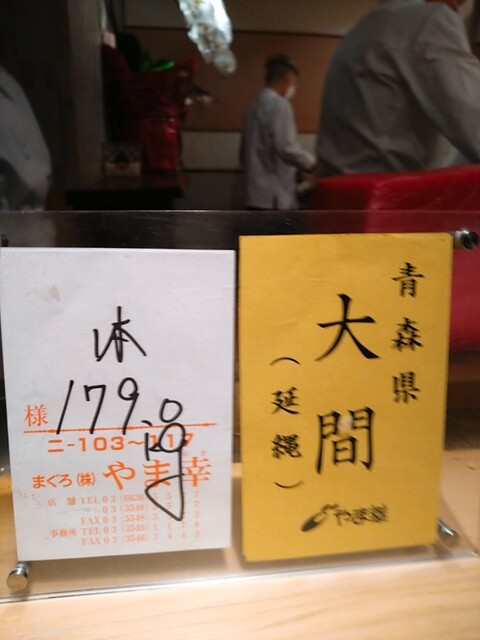 山本
様
179.0
kg
ニ-103〜117
まぐろ(株)やま幸
店舗 TEL 03
FAX 03
事務所 TEL 03(3545)
FAX 03(3546)
青森県
大間
(延縄)
やま幸